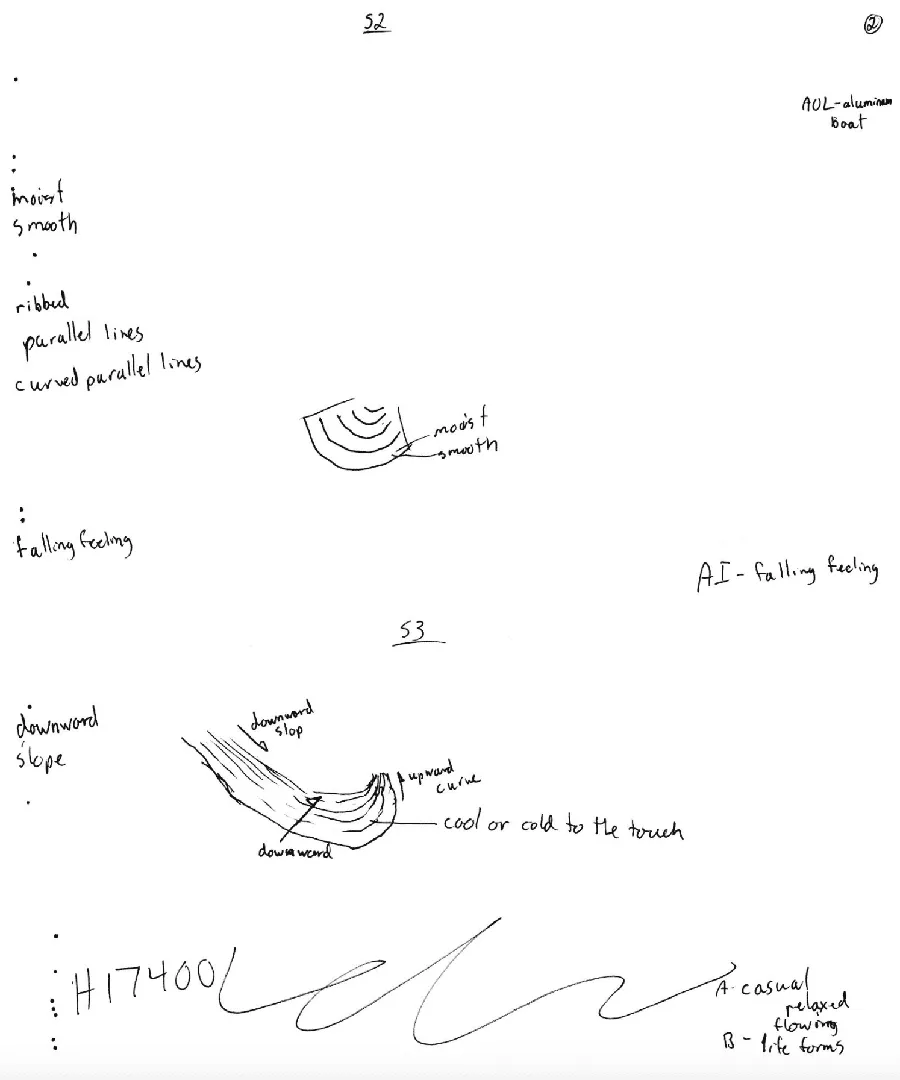 S2
②
AOL-aluminum
Boat
moist
smooth
ribbed
parallel lines
curved parallel lines
moist
smooth
falling feeling
AI - falling feeling
S3
downward
slope
downward
slop
upward
curve
cool or cold to the touch
downward
H17400
A-casual
relaxed
flowing
B - life forms